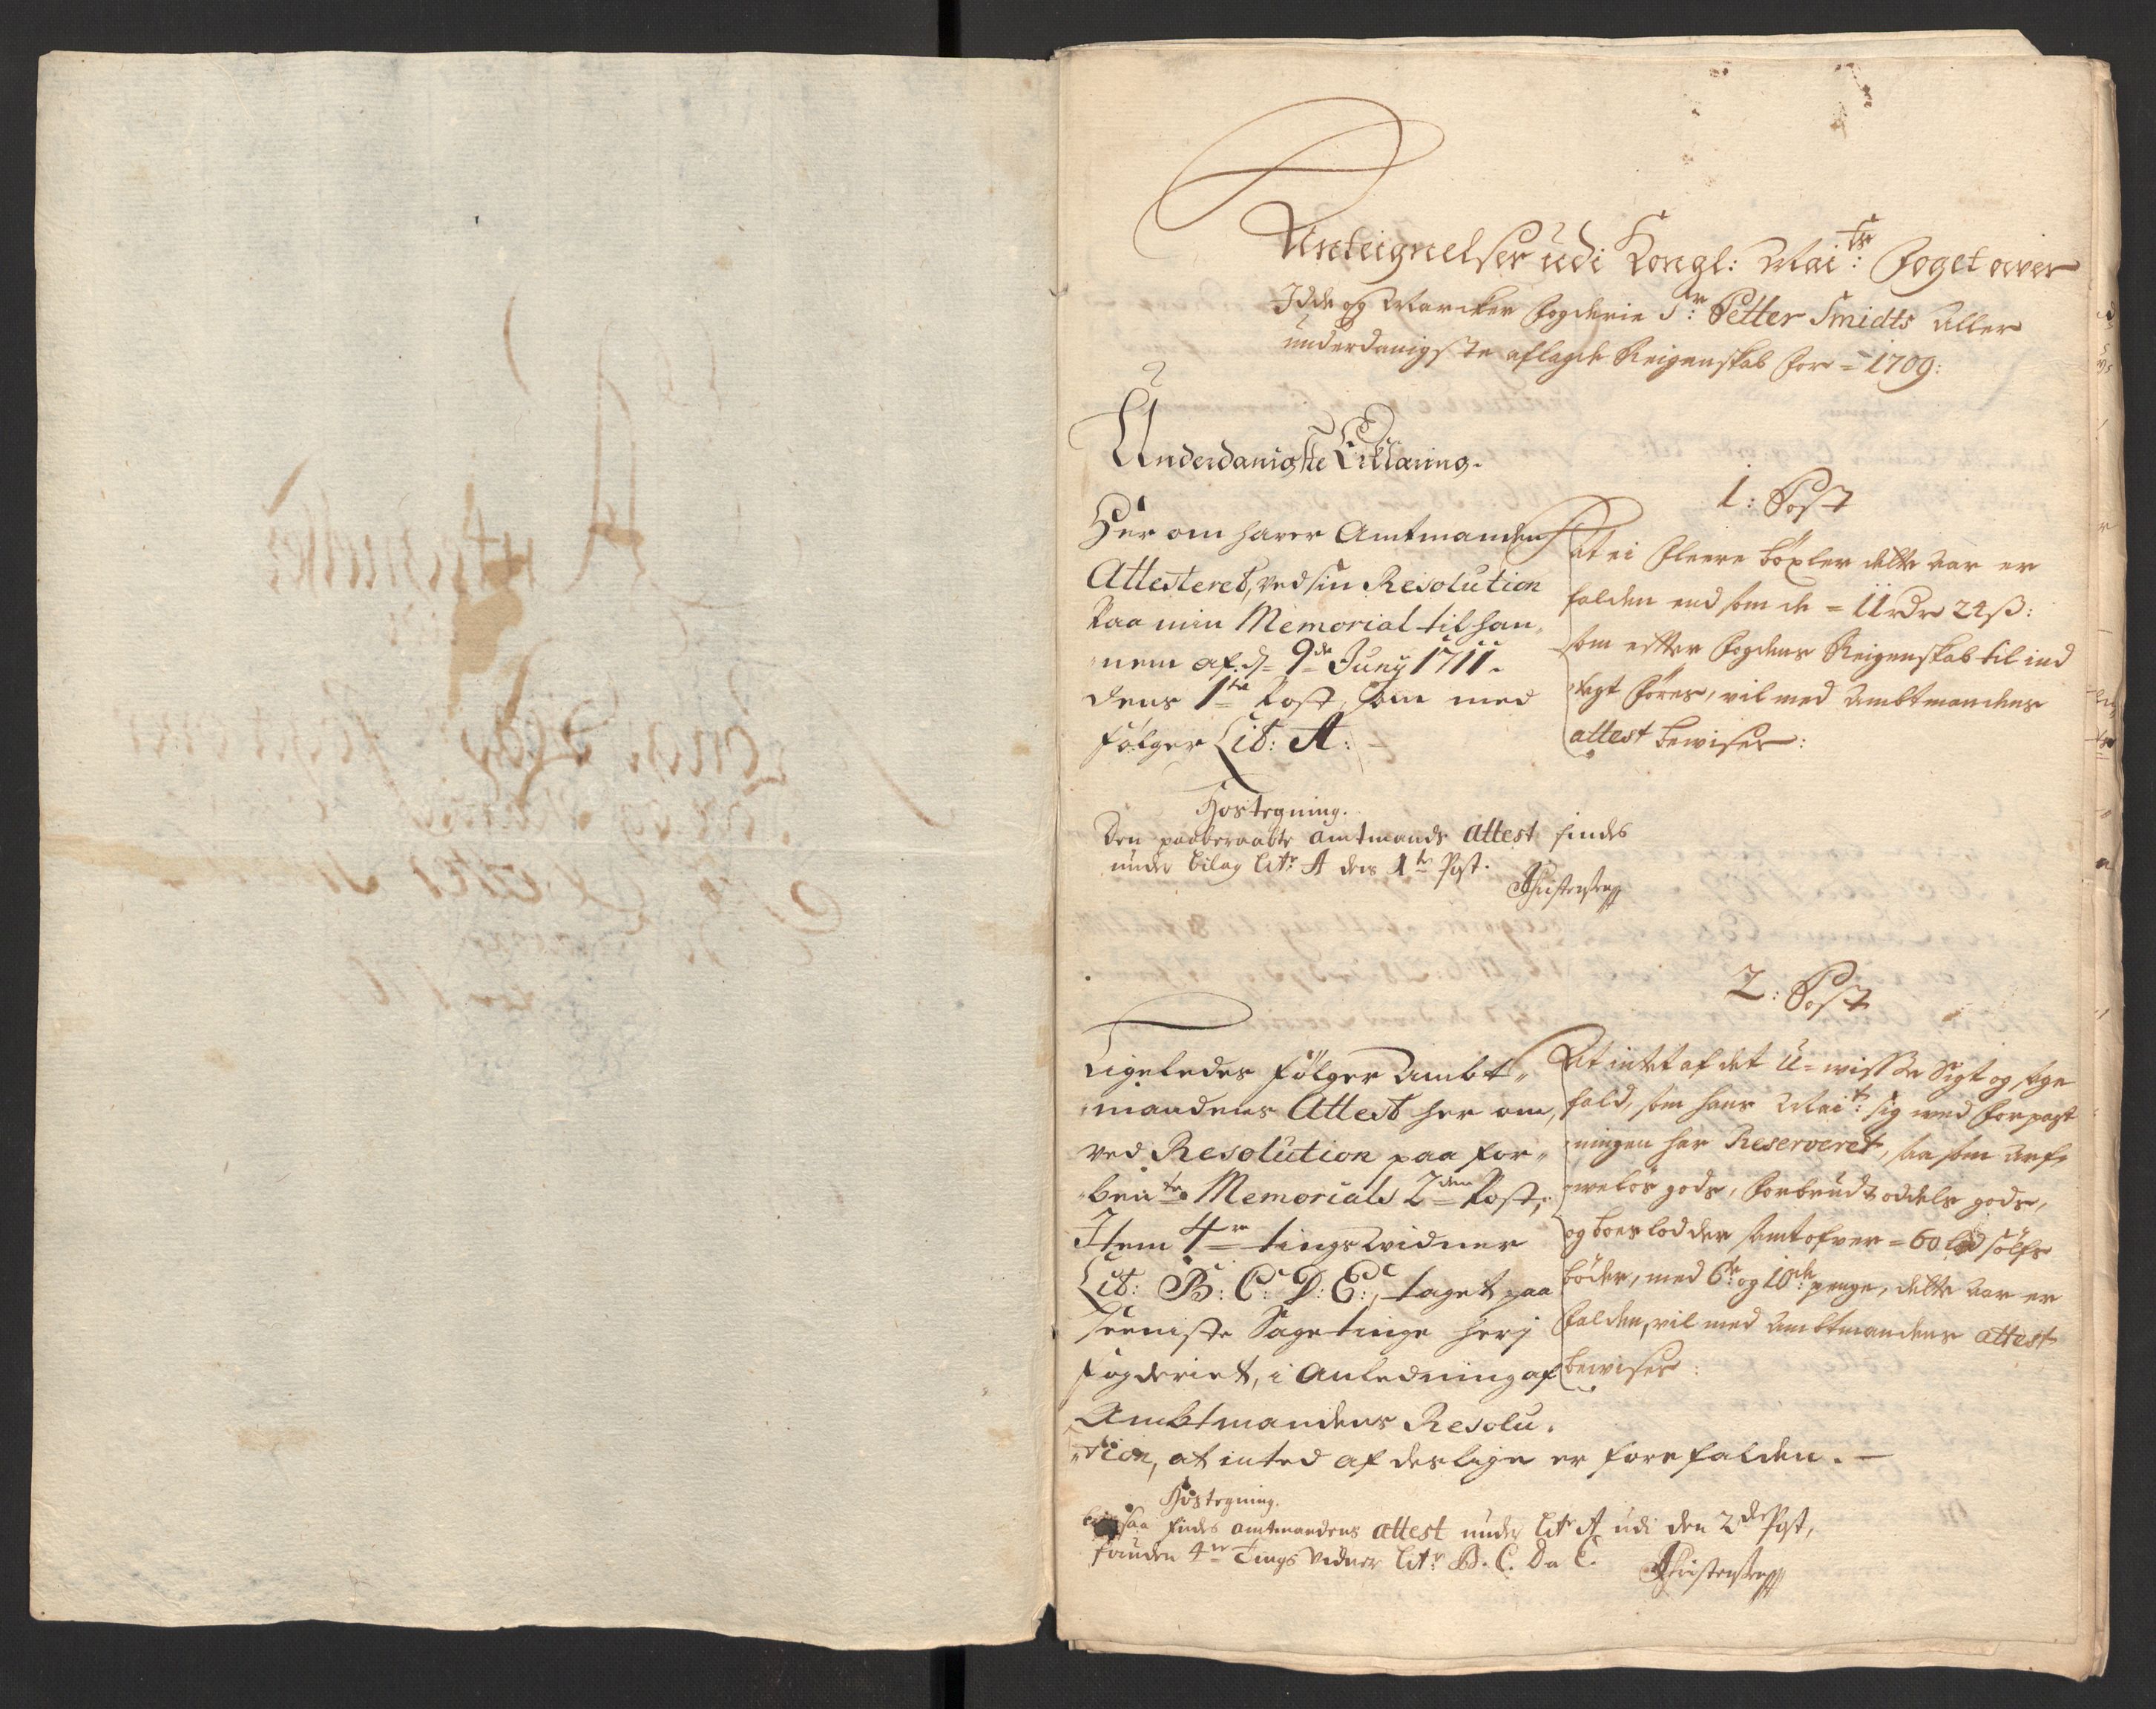 Anteignelser udi Kongl: Mai:ts Foget over
Idde og Marcker Fogderie Sr: Petter Smidts aller
underdanigste aflagde Reigenskab for = 1709:
Underdanigste Erklæring.
1: Post
Her om harer Amtmanden
Attestered, ved sin Resolution
Paa min Memorial til han„
„nem af d= 9de Juny 1711.
dens 1te Post, som med
følger Lit: A:
At ei fleere böxler dette aar er
falden end som de = 11 rdr 24 ß:
som efter Fogdens Reigenskab til ind
„tegt föres, vil med Ambtmandens
attest bewises:
Hostegning.
Den paaberaabte amtmands attest findes
under bilag Litr A dens 1te Post.
Christensen
2: Post
Ligeledes følger Ambt„
„mandens Attest her om,
ved Resolution paa for„
„ben:te Memorials 2den Post,
Item 4re tings Widner
Lit: B: C: D: E:, taget paa
seeniste Sageting her j
fogderiet, i Anledning af
Ambtmandens Resolu„
„tion, at inted af deslige er forefalden. —
At intet af det U=wisse Sigt og Sage
fald, som hans Mai:t sig med forpagt
„ningen har Reserveret, saa som Arf„
„welös gods, forbrudt oddels gods,
og boeslodder samt ofver = 60 lod sölfs
böder, med 6te og 10de penge, dette aar er
falden, vil med Ambtmandens attest
bewises:
Hostegning.
saa findes amtmandens attest under Litr A udi den 2de Post,
foruden 4re Tings Vidner Litr B. C. D a E.
Christensen